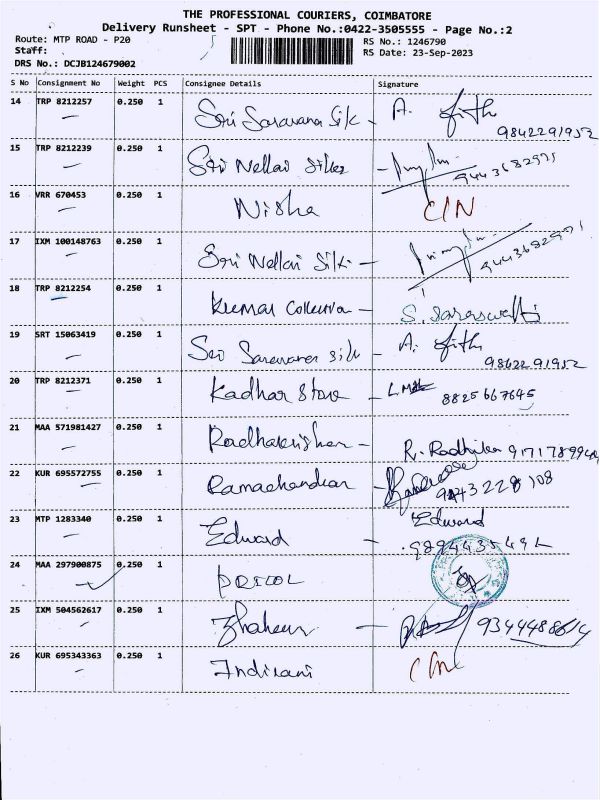 THE PROFESSIONAL COURIERS, COIMBATORE
Delivery Runsheet - SPT - Phone No.:0422-3505555 - Page No.:2
Route: MTP ROAD - P20
RS No.: 1246790
Staff:
RS Date: 23-Sep-2023
DRS No.: DCJB124679002
S No Consignment No Weight PCS Consignee Details Signature
14 TRP 8212257 0.250 1 Sri Saravana Silk - A.
9842291952
15 TRP 8212239 0.250 1 Sri Nellai Silks -
9443682971
16 VRR 670453 0.250 1 Nisha C/N
17 IXM 100148763 0.250 1 Sri Nellai Silk -
9443682971
18 TRP 8212254 0.250 1 Kumar - S. Saraswathi
19 SRT 15063419 0.250 1 Sri Saravana Silk - A.
9842291952
20 TRP 8212371 0.250 1 Kadhar Store - 8825667645
21 MAA 571981427 0.250 1 Radhakrishnan - R.
22 KUR 695572755 0.250 1 Ramachandran -
9443228108
23 MTP 1283340 0.250 1 Edward - Edward
24 MAA 297900875 0.250 1 PRICOL
25 IXM 504562617 0.250 1 -
26 KUR 695343363 0.250 1 Indirani